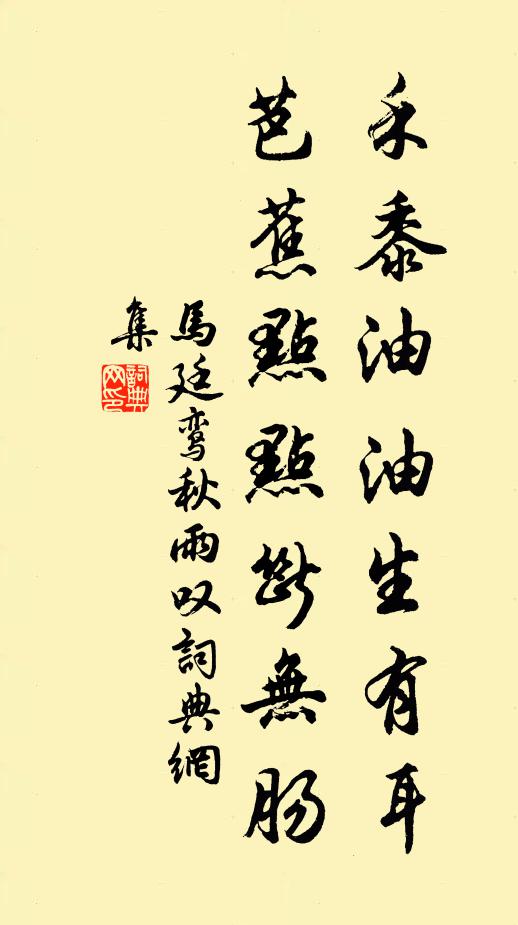 禾黍油油生有耳
芭蕉點點斷無肠
馬廷鸾秋雨叹詞典網
集
詞典
网印